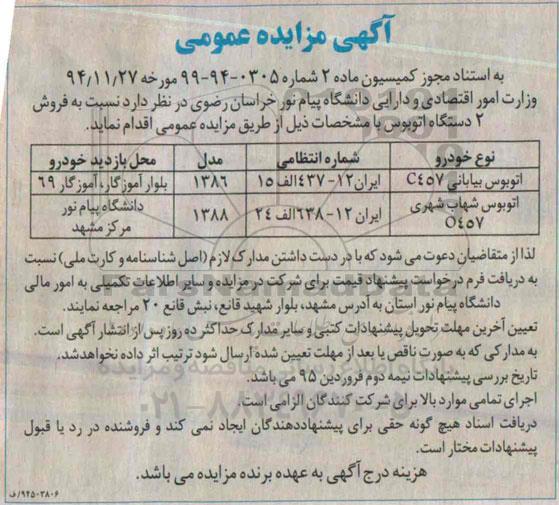 آگهی مزایده عمومی
به استناد مجوز کمیسیون ماده ۲ شماره ۰۳۰۵-۹۴-۹۹ مورخه ۹۴,۱۱,۲۷
وزارت امور اقتصادی و دارایی دانشگاه پیام نور خراسان رضوی در نظر دارد نسبت به فروش
۲ دستگاه اتوبوس با مشخصات ذیل از طریق مزایده عمومی اقدام نماید.
نوع خودرو شماره انتظامی مدل محل بازدید خودرو
اتوبوس بیابانی C۴۵۷ ایران۱۲-۴۳۷الف۱۵ ۱۳۸۶ بلوار آموزگار، آموزگار ۶۹
اتوبوس شهاب شهری ایران۱۲-۶۳۸الف۲۴ ۱۳۸۸ دانشگاه پیام نور
O۴۵۷ مرکز مشهد
لذا از متقاضیان دعوت می شود که با در دست داشتن مدارک لازم (اصل شناسنامه و کارت ملی) نسبت
به دریافت فرم درخواست پیشنهاد قیمت برای شرکت در مزایده و سایر اطلاعات تکمیلی به امور مالی
دانشگاه پیام نور استان به آدرس مشهد، بلوار شهید قانع، نبش قانع ۲۰ مراجعه نمایند.
تعیین آخرین مهلت تحویل پیشنهادات کتبی و سایر مدارک حداکثر ده روز پس از انتشار آگهی است.
به مدارکی که به صورت ناقص یا بعد از مهلت تعیین شده ارسال شود ترتیب اثر داده نخواهد شد.
تاریخ بررسی پیشنهادات نیمه دوم فروردین ۹۵ می باشد.
اجرای تمامی موارد بالا برای شرکت کنندگان الزامی است.
دریافت اسناد هیچ گونه حقی برای پیشنهاددهندگان ایجاد نمی کند و فروشنده در رد یا قبول
پیشنهادات مختار است.
هزینه درج آگهی به عهده برنده مزایده می باشد.
۹۴۵۰۳۸۰۶/ف